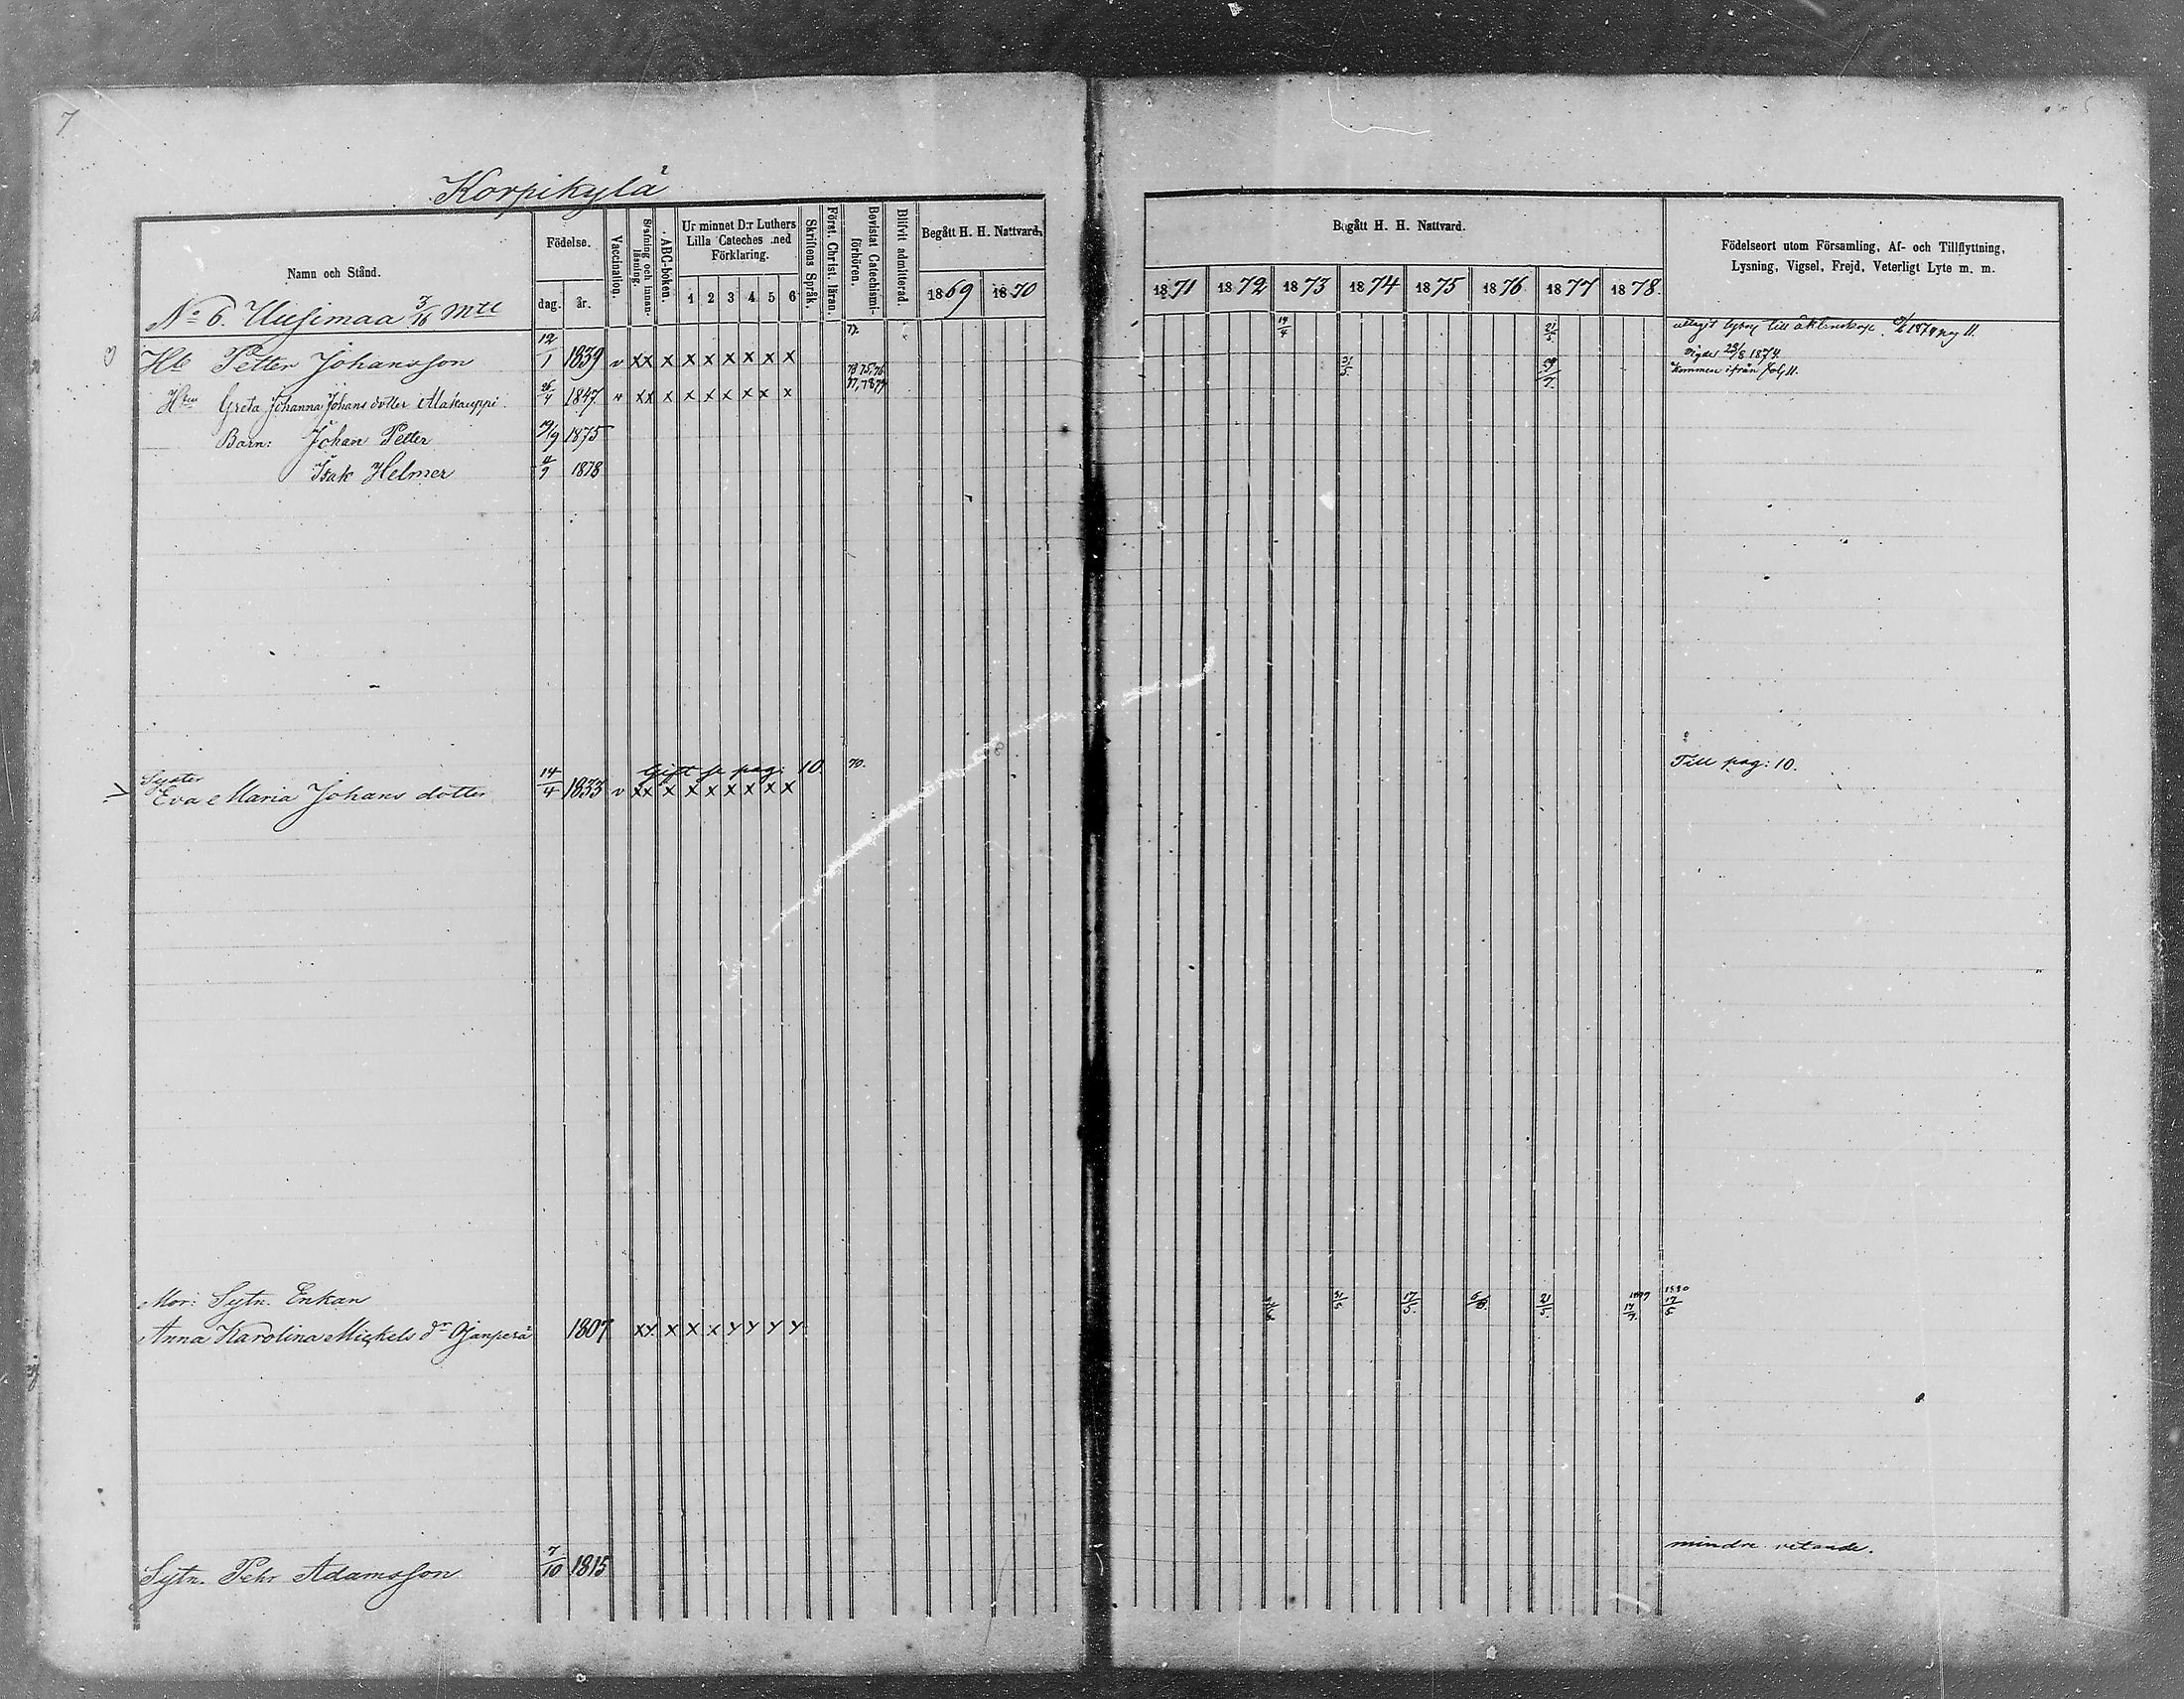 7
Korpikylä
Namn och Stånd.
Födelse.
dag.
år.
Vaccination.
Stafning och innan-läsning.
ABC-boken.
Ur minnet D:r Luthers Lilla Cateches med Förklaring.
1 2 3 4 5 6
Skriftens Språk.
Först. Christ. läran.
Bevistat Catechismi-förhören.
Blifvit admitterad.
Begått H. H. Nattvard.
1869 1870
Begått H. H. Nattvard.
1871 1872 1873 1874 1875 1876 1877 1878.
Födelseort utom Församling, Af- och Tillflyttning,
Lysning, Vigsel, Frejd, Veterligt Lyte m. m.
No 6. Uusimaa 3/16 Mtl
Hb Petter Johansson 12/1 1839 v xx x x x x x x x 77. 14/4 21/5 uttagit lysn till äktenskap 1874 pag 11.
vigde 23/8 1874.
Hun Greta Johanna Johans dotter Alakuppi. 26/4 1847 v xx x x x x x x x 31/5 29/7 Kommen ifrån fol, 11.
Barn: Johan Petter 19/9 1875
Isak Helmer 11/9 1878
Gift se pag: 10. 70. Till pag: 10.
Syster
Eva Maria Johans dotter 14/4 1833 v xx x x x x x x x
Mor: Sytn. Enkan 31/5 17/5 6/6 21/5 1879 1880 17/5
Anna Karolina Mickels dr Ojanperä 1807 xy x x x y y y y
mindre vetande.
Sytn. Pehr Adamsson 7/10 1815